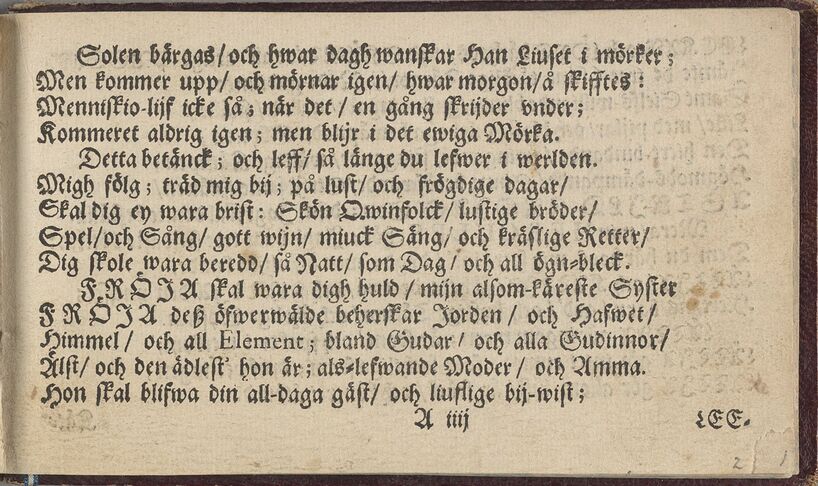 Solen bärgas/ och hwar dagh wanskar Han Liuset i mörker;
Men kommer upp/ och mörnar igen/ hwar morgon/ å skifftes:
Menniskio-lijf icke så; när det/ en gång skrijder vnder;
Kommeret aldrig igen; men blijr i det ewiga Mörka.
Detta betänck; och leff/ så länge du lefwer i werlden.
Migh fölg; träd mig bij; på lust/ och frögdige dagar/
Skal dig ey wara brist: Skön Qwinfolck/ lustige bröder/
Spel/ och Sång/ gott wijn/ miuck Säng/ och kräslige Retter/
Dig skole wara beredd/ så Natt/ som Dag/ och all ögn-bleck.
FRÖIJA skal wara digh huld/ mijn alsom-käreste Syster
FRÖIJA deß öfwerwälde beherskar Jorden/ och Hafwet/
Himmel/ och all Element; bland Gudar/ och alla Gudinnor/
Älst/ och den ädlest' hon är; als-lefwande Moder/ och Amma.
Hon skal blifwa din all-daga gäst/ och liuflige bij-wist;
A iiij LEE-
2 1